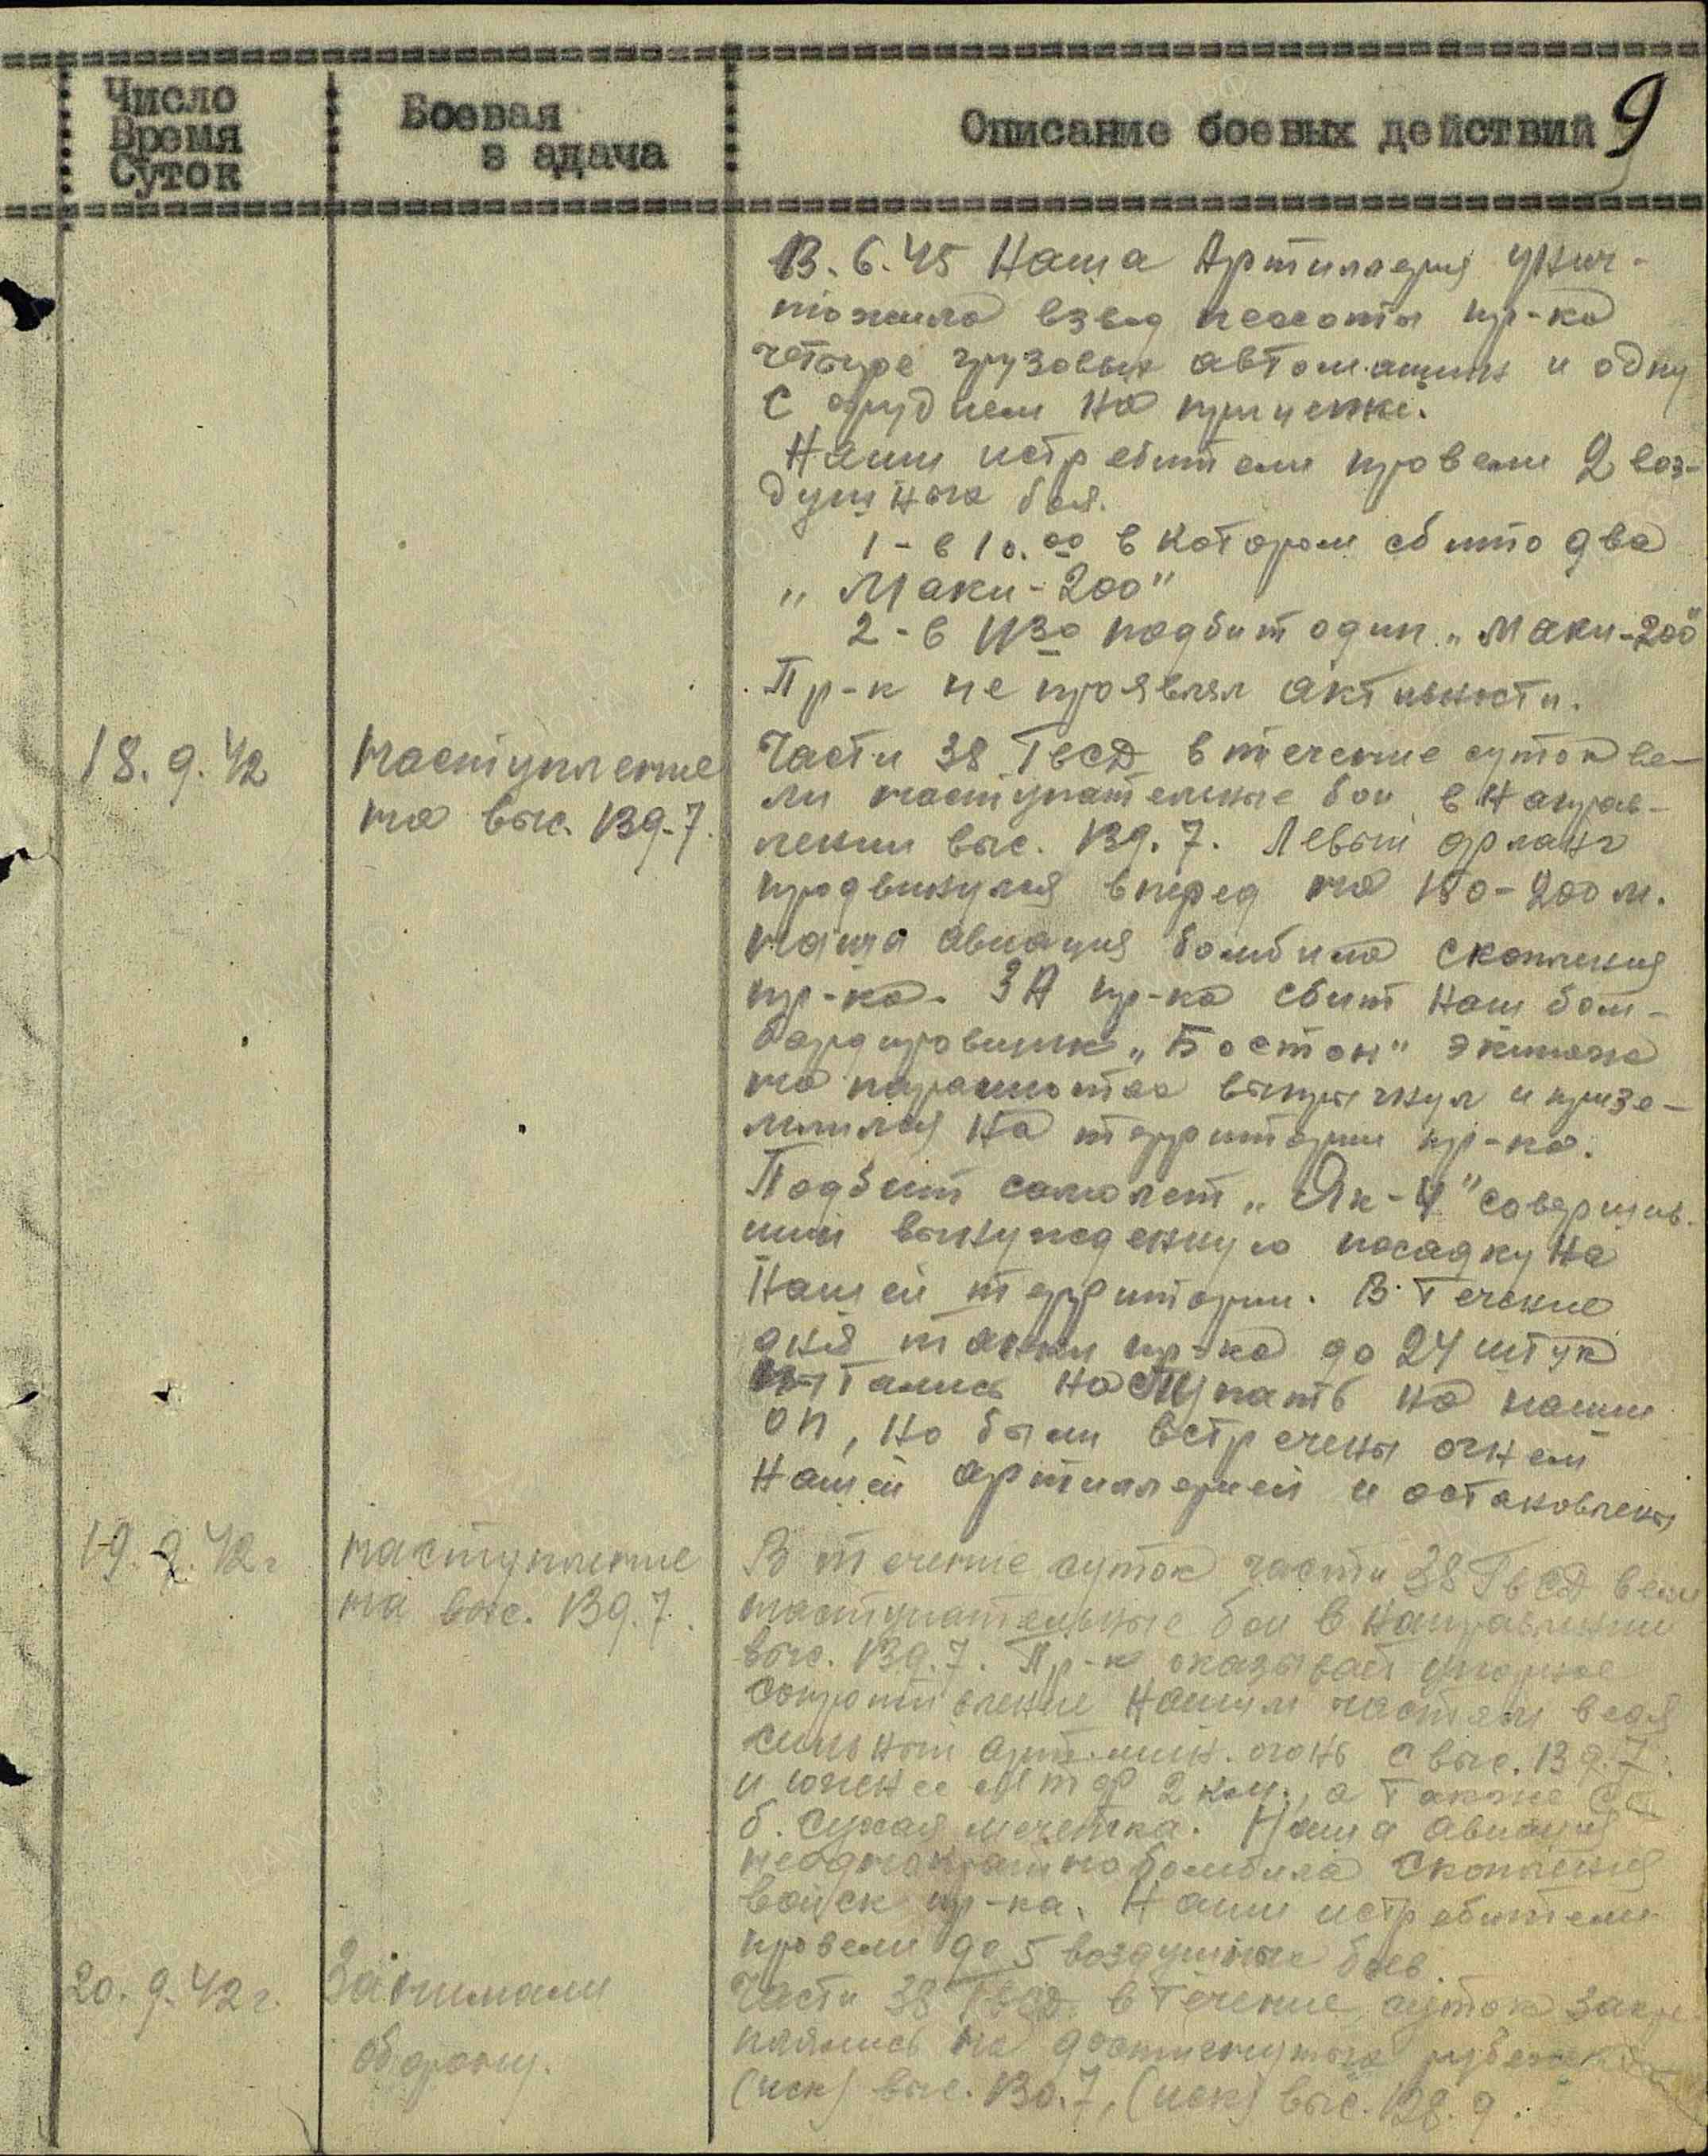 Число
Время
Суток
Боевая
задача
Описание боевых действий
9
В. 6.45 Наша Артилерия унич-
тожила взвод пехоты пр-ка
четыре грузовых автомашин и одну
с орудием на прицепке.
Наши истребители провели 2 воз-
душных боя.
1 - в 10.00 в котором сбито два
„Маки-200"
2 - в 1130 подбит один „Маки-200"
Пр-к не проявлял активности.
18.9.42
наступление
на выс. 139.7.
Части 38 ГвСД в течение суток ве-
ли наступательные бои в направ-
лении выс. 139.7. Левый фланг
продвинулся вперед на 150-200 м.
наша авиация бомбила скопления
пр-ка. ЗА пр-ка сбит наш бом-
бардировщик „Бостон" экипаж
на парашютах выпрыгнул и призе-
млился на территории пр-ка.
Подбит самолет „Як-4" совершив-
ший вынужденную посадку на
нашей территории. В течение
дня танки пр-ка до 24 штук
пытались наступать на наши
ОП, но были встречены огнем
нашей артилерией и остановлены
19.9.42 г.
наступление
на выс. 139.7.
В течение суток части 38 ГвСД вели
наступательные бои в направлении
выс. 139.7. Пр-к оказывает упорное
сопротивление нашим частям ведя
сильный арт. мин. огонь с выс. 139.7.
и южнее МТФ 2 км., а также со
б. Сухая мечетка. Наша авиация
неоднократно бомбила скопления
войск пр-ка. Наши истребители
провели до 5 воздушных боев.
20.9.42 г.
Занимали
оборону.
Части 38 ГвСД в течение суток закре
плялись на достигнутых рубежах
(иск) выс. 130.7, (иск) выс. 128.9.